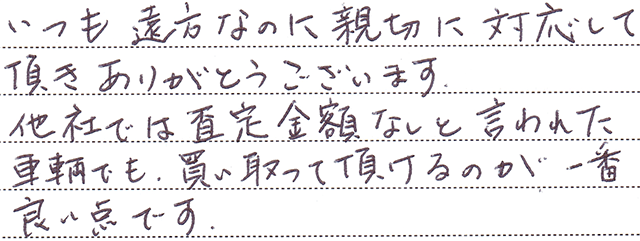 いつも遠方なのに親切に対応して
頂きありがとうございます.
他社では査定金額なしと言われた
車輌でも.買い取って頂けるのが一番
良い点です.